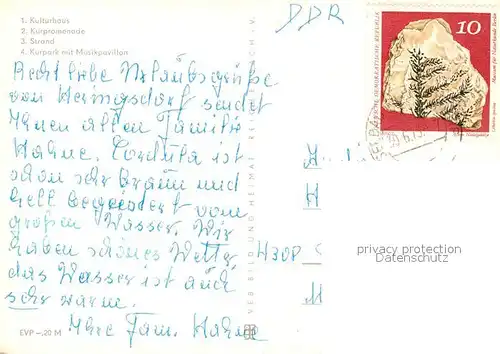 1. Kulturhaus
2. Kurpromenade
3. Strand
4. Kurpark mit Musikpavillon
DDR
10
DEMOKRATISCHE REPUBLIK
Recht liebe Urlaubsgrüße
von Heringsdorf sendet
Ihnen allen Familie
Hahne. Cordula ist
schon sehr braun und
hell begeistert vom
großen Wasser. Wir
haben schönes Wetter,
das Wasser ist auch
sehr warm.
Ihre Fam. Hahne
VEB BILD UND HEIMAT REICHENBACH I. V.
EVP –,20 M
privacy protection
Datenschutz